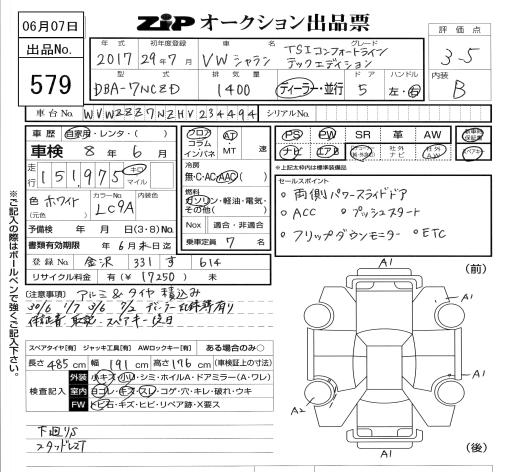 06月07日
ZiP オークション出品票
評価点
3.5
内装
B
出品No.
579
年式
2017
初年度登録
29年7月
車名
VWシャラン
グレード
TSIコンフォートライン
テックエディション
型式
DBA-7NCZD
排気量
1400
ディーラー・並行
ドア
5
ハンドル
左・右
車台No.
WVWZZZ7NZHV234494
シリアルNo.
車歴 自家用・レンタ・( )
車検 8年6月
走行 151,975 キロ
マイル
色 ホワイト
(元色)
カラーNo.
LC9A
内装色
予備検 年 月 日(3・8) 未
書類有効期限 6月末日迄
登録No. 金沢 331 す 614
リサイクル料金 有(¥17250)未
フロア
コラム
インパネ
AT
MT
速
冷房
無・C・AC・AAC( )
燃料
ガソリン・軽油・電気・
その他( )
Nox 適合・非適合
乗車定員 7名
PS PW SR 革 AW
ナビ エアB
社外
ナビ
社外
AW
*上記太枠内は標準装備品
セールスポイント
○両側パワースライドドア
○ACC ○プッシュスタート
○フリップダウンモニター ○ETC
(注意事項) アルミ&タイヤ積込み
スペアタイヤ[有] ジャッキ工具[有] AWロックキー[有] ある場合のみ○
長さ485cm 幅191cm 高さ176cm (車検証上の寸法)
検査記入
外装 小キズ・小凹・シミ・ホイルA・ドアミラー(A・ワレ)
室内 ヨゴレ・キズ・スレ・コゲ・穴・キレ・破れ・ウキ
FW トビ石・キズ・ヒビ・リペア跡・X要ス
下廻りS
スタッドレスT
※ご記入の際はボールペンで強くご記入下さい。
A1
(前)
A1
A1
A2
A1
A1
(後)